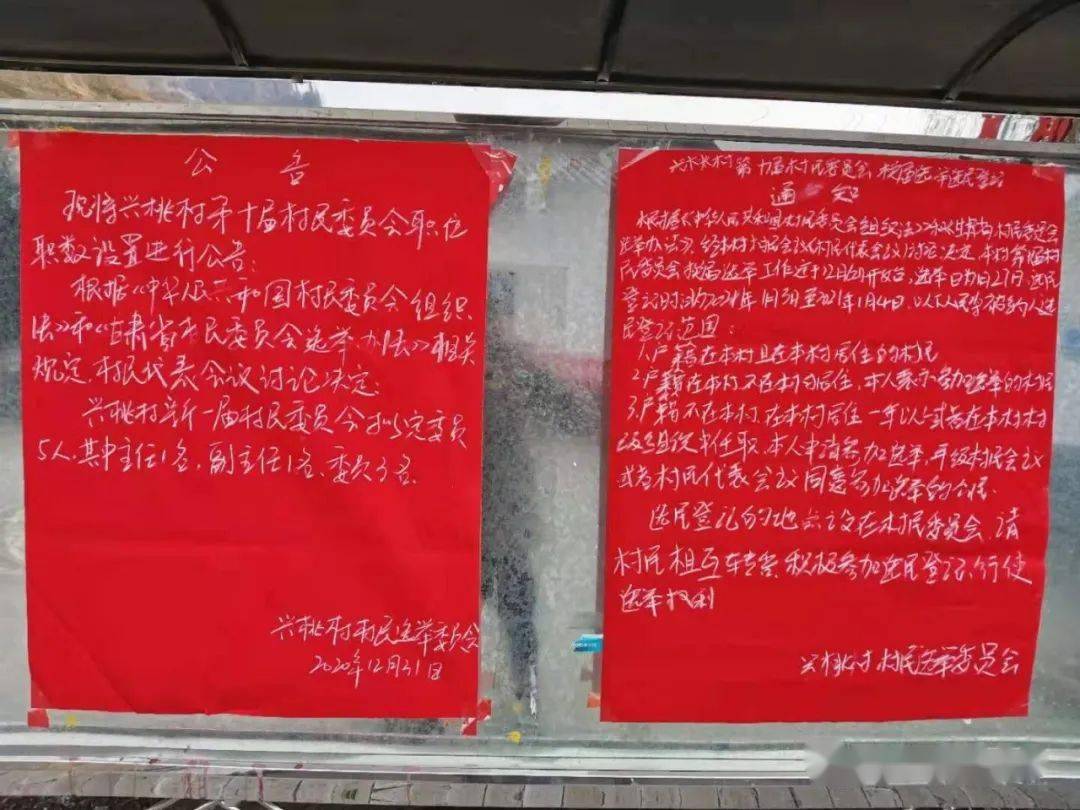 公告
现将兴桃村第十届村民委员会职位
职数设置进行公告:
根据《中华人民共和国村民委员会组织
法》和《甘肃省村民委员会选举办法》相关
规定,村民代表会议讨论决定:
兴桃村新一届村民委员会拟定委员
5人,其中主任1名,副主任1名,委员3名。
兴桃村村民选举委员会
2020年12月31日
第十届村民委员会换届选举选民登记
通知
根据《中华人民共和国村民委员会组织法》和《甘肃省村民委员会
选举办法》,经村民会议(村民代表会议)讨论决定,本村第十届村
民委员会换届选举工作于12月 开始,选举日为 月27日,选民
登记时间为 年 月3日至2021年1月4日,
民登记范围:
1.户籍在本村且在本村居住的村民
2.户籍在本村,不在本村居住,本人表示参加选举的村民
3.户籍不在本村,在本村居住一年以上或者在本村村
级组织中任职,本人申请参加选举,并经村民会议
或者村民代表会议同意参加选举的公民。
选民登记的地点设在村民委员会,请
村民相互转告,积极参加选民登记,行使
选举权利
兴桃村村民选举委员会